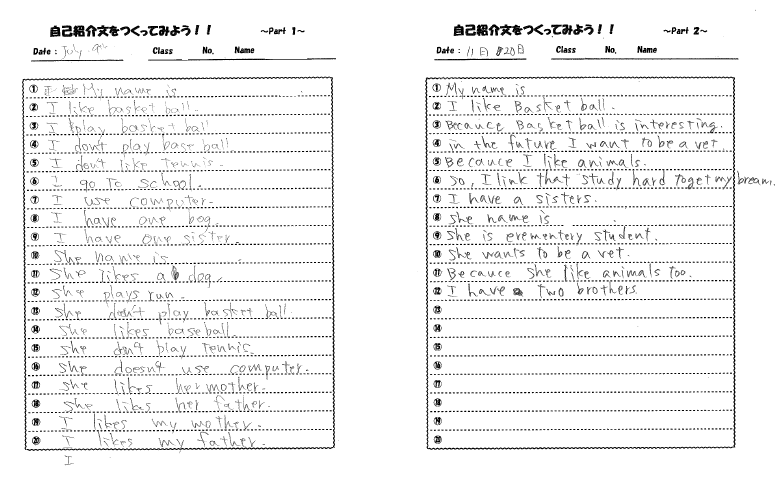 自己紹介文をつくってみよう！！ ～Part 1～
Date : July 9th Class No. Name
① My name is .
② I like basket ball.
③ I play basket ball
④ I don't play base ball
⑤ I don't like Tennis.
⑥ I go To school.
⑦ I use computer.
⑧ I have one
⑨ I have one sister.
⑩ She name is
⑪ She likes a dog.
⑫ She plays run.
⑬ She don't play basket ball.
⑭ She likes baseball.
⑮ She don't play Tennis.
⑯ She doesn't use computer.
⑰ She likes her mother.
⑱ She likes her father.
⑲ I likes my mother.
⑳ I likes my father.
I
自己紹介文をつくってみよう！！ ～Part 2～
Date : 11月 20日 Class No. Name
① My name is
② I like Basket ball.
③ Becauce Basket ball is interesting.
④ in the future I want to be a vet.
⑤ Becauce I like animals.
⑥ So, I link that study hard to get my bream.
⑦ I have a sisters.
⑧ She name is .
⑨ She is erementery student.
⑩ She wants to be a vet.
⑪ Becauce She like animals too.
⑫ I have Two brothers
⑬
⑭
⑮
⑯
⑰
⑱
⑲
⑳